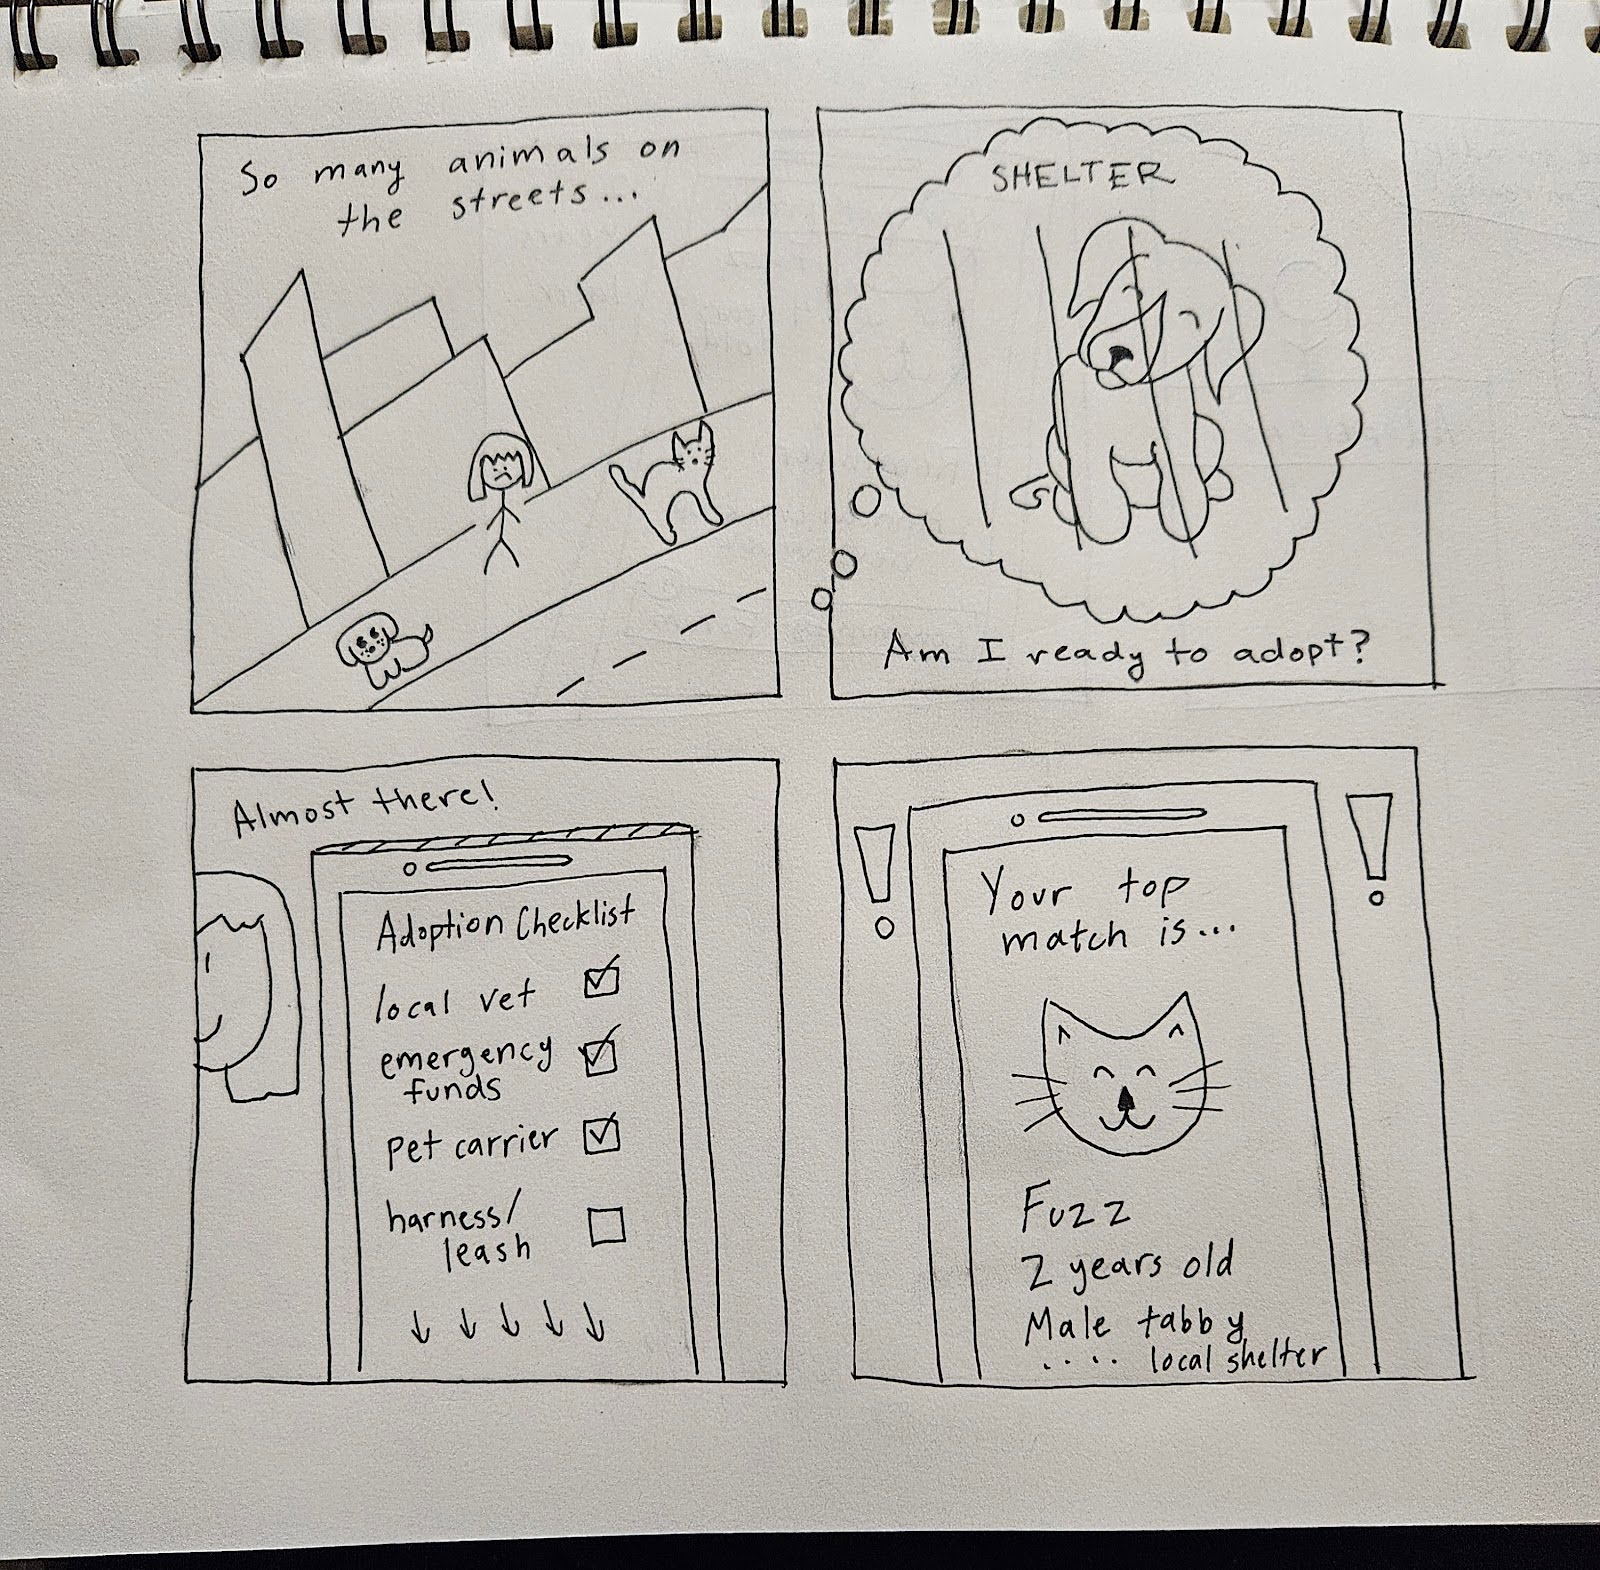 So many animals on
the streets...
SHELTER
Am I ready to adopt?
Almost there!
Adoption Checklist
local vet
emergency
funds
pet carrier
harness/
leash
Your top
match is...
Fuzz
2 years old
Male tabby
.... local shelter